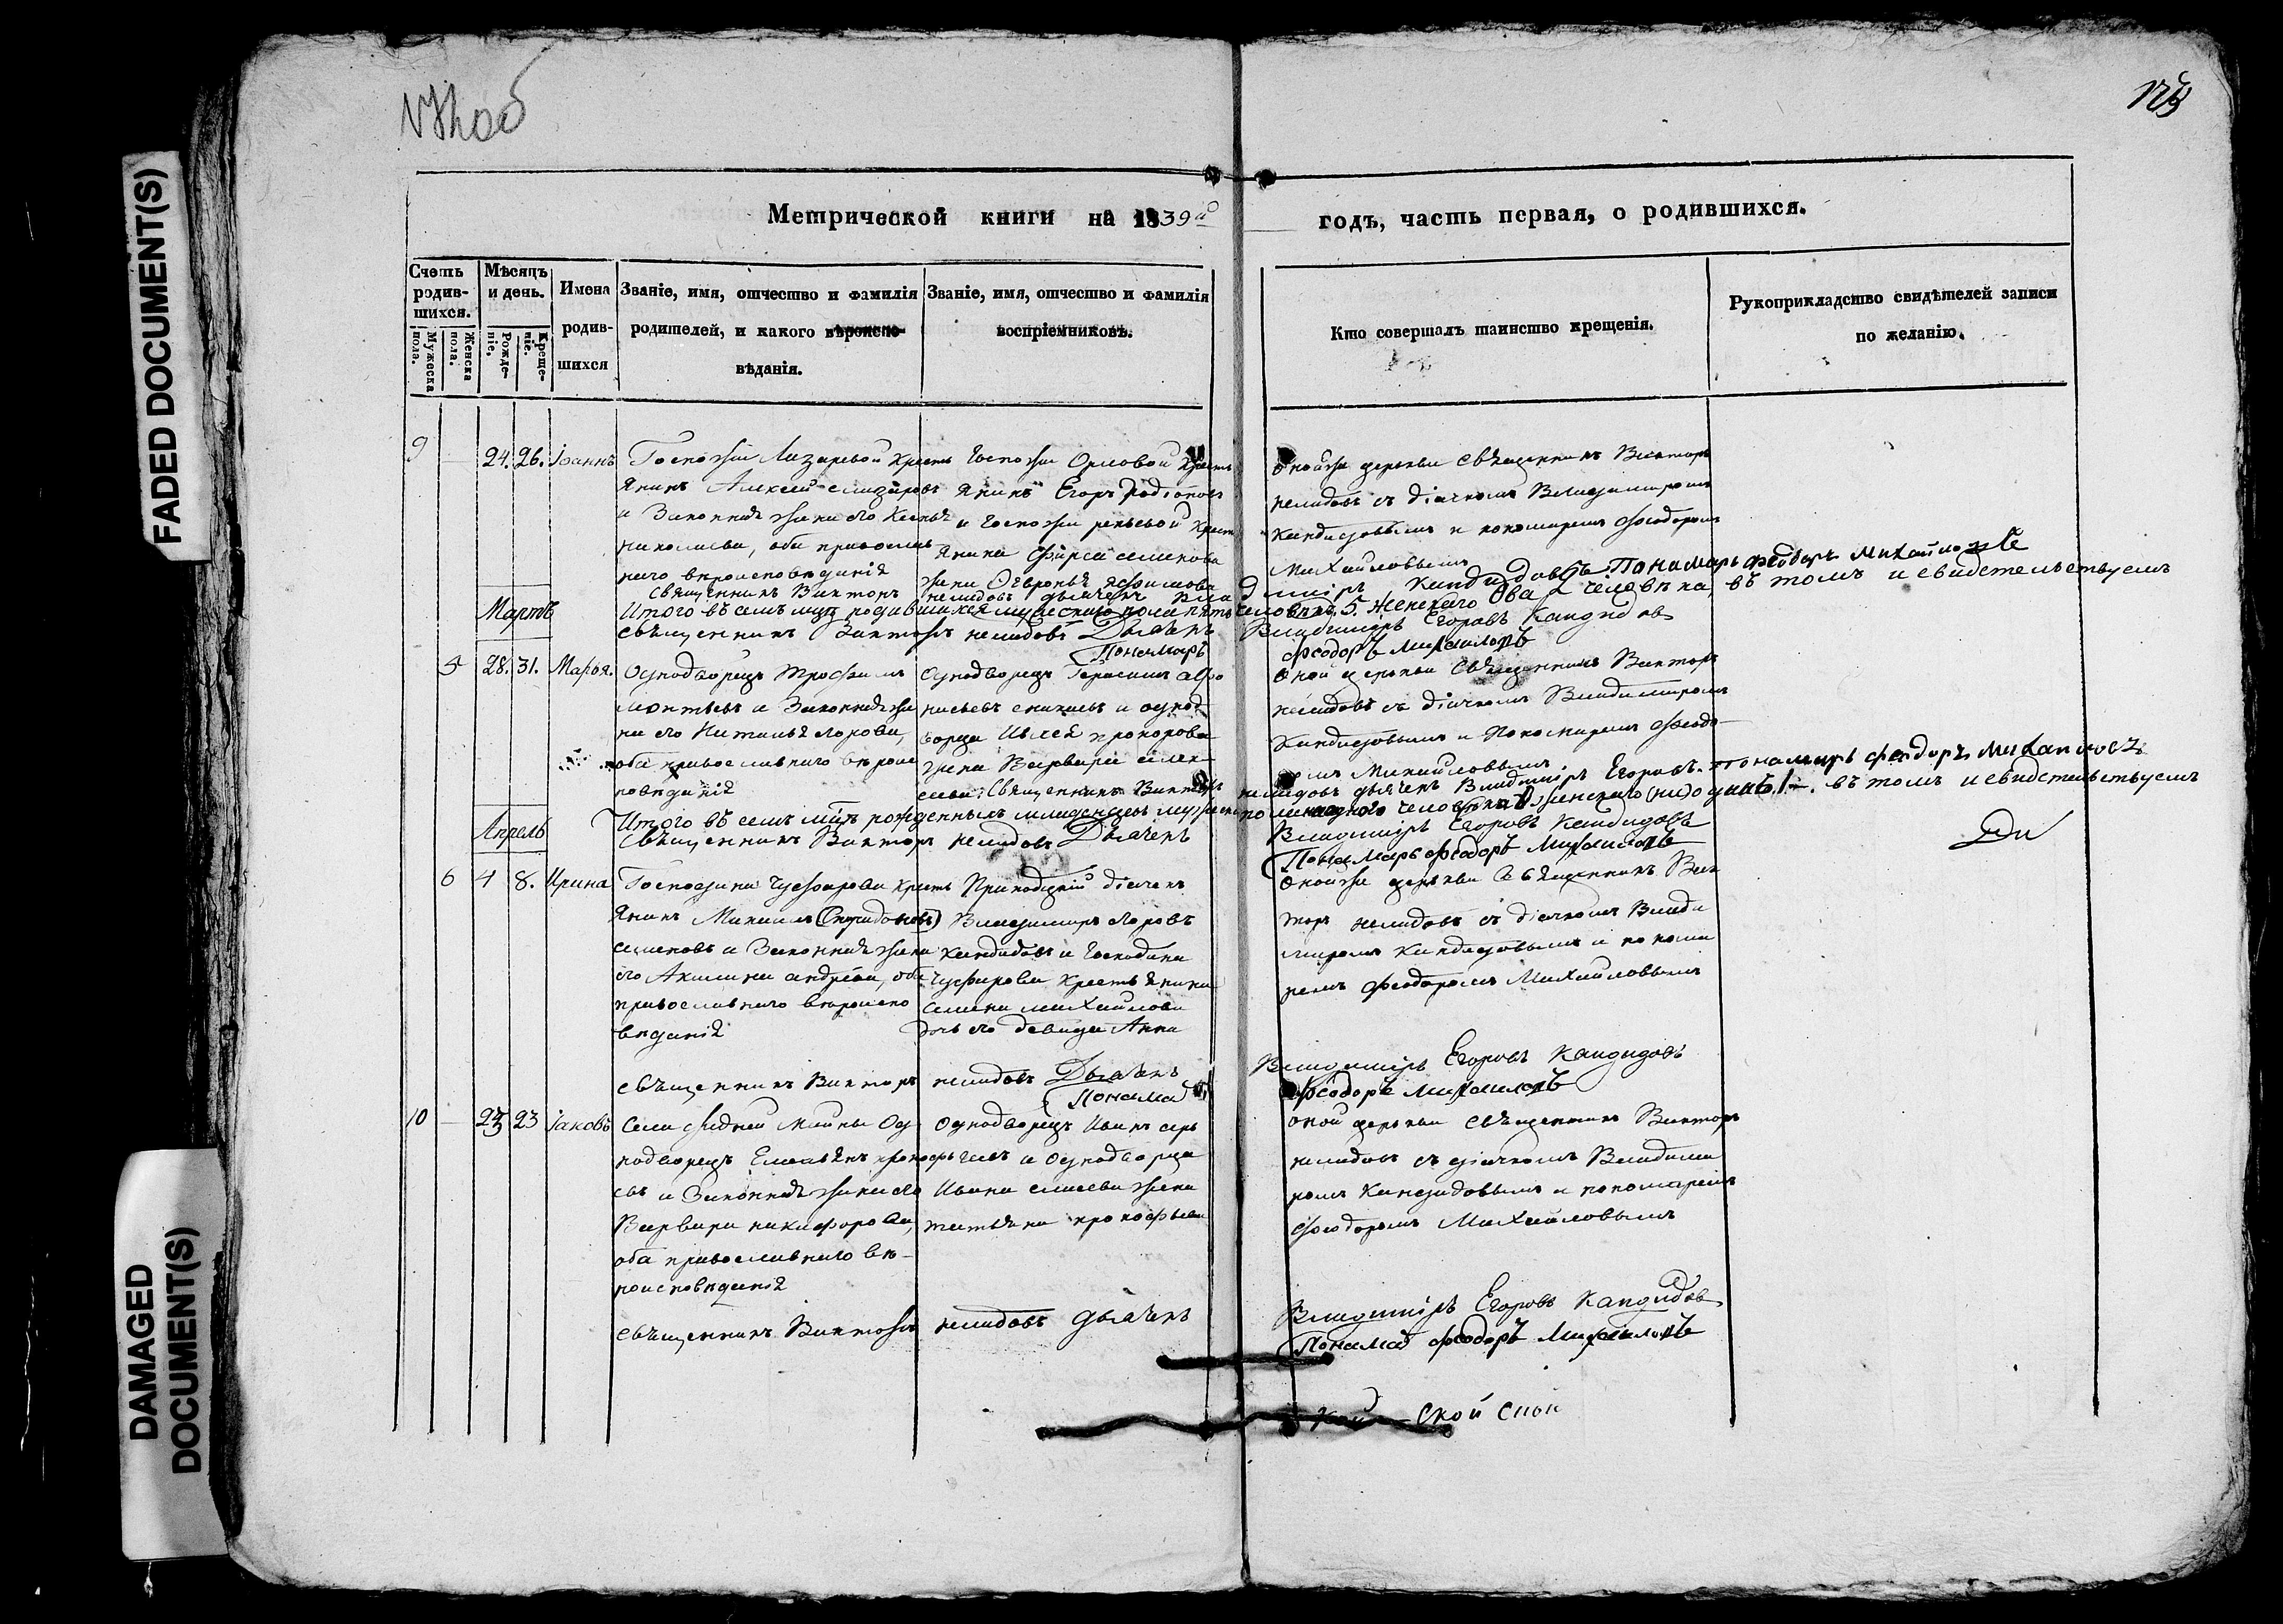 FADED DOCUMENT(S)
DAMAGED
DOCUMENT(S)
Метрической книги на 1839й
годъ, часть первая, о родившихся.
Счетъ родив-шихся.
Мужеска пола.
Женска пола.
Мѣсяцъ и день.
Рожде-ніе.
Креще-ніе.
Имена
родив-
шихся
Званіе, имя, отчество и фамилія
родителей, и какого вѣроиспо-
вѣданія.
Званіе, имя, отчество и фамилія
воспріемниковъ.
Кто совершалъ таинство крещенія.
Рукоприкладство свидѣтелей записи
по желанію.
9 24. 26. Іоаннъ
Госпожи Лазаревой кресть
янинъ Алексей елизаровъ
и Законная жена его Ксенья
николаева, оба православ
наго вероисповеданія
Госпожи Орловой кресть
янинъ Егоръ Родіоновъ
и госпожи крест
янина Фирса семенова
жена
оной же церкви священникъ Викторъ
нелидовъ съ діачкомъ Владимиромъ
Кандидовымъ и пономаремъ Феодоромъ
Михайловымъ
священникъ Викторъ нелидовъ дьячекъ Владиміръ Кандидовъ Пономарь Феодоръ Михайловъ
Итого въ семъ мцѣ родившихся мужескаго пола пять человѣкъ 5 женскаго два 2 человѣка, въ томъ и свидетельствуемъ
священникъ Викторъ нелидовъ Дьячекъ Владиміръ Егоровъ Кандидовъ
Пономарь Феодоръ Михайловъ
Мартъ
5 28. 31. Марья.
Однодворецъ Трофимъ
леонтьевъ и Законная же
на его Наталья егорова,
оба православнаго вероис
поведанія
Однодворецъ Герасимъ афо
насьевъ и однод
ворца прохорова
жена Варвара алек
сеева
оной церкви Священникъ Викторъ
нелидовъ съ діачкомъ Владимиромъ
Кандидовымъ и Пономаремъ Феодо
ромъ Михайловымъ
Священникъ Викторъ нелидовъ дьячекъ Владиміръ Егоровъ. пономарь Феодоръ Михайловъ
Итого въ семъ мцѣ рожденныхъ младенцевъ мужеска пола ниоднаго человѣка женскаго 1. въ томъ и свидетельствуемъ
Священникъ Викторъ нелидовъ Дьячекъ Владиміръ Егоровъ Кандидовъ
Пономарь Феодоръ Михайловъ
Апрель
6 4 8. Ирина
Господина Чуфарова кресть
янинъ Михаилъ
семеновъ и Законная жена
его Акилина андреева, оба
православнаго вероиспо
веданія
Приходскій діачекъ
Владимиръ егоровъ
Кандидовъ и господина
Чуфарова крестьянина
Семена михайлова
дочь его девица Анна
оной же церкви Священникъ Вик
торъ нелидовъ съ діачкомъ Влади
миромъ Кандидовымъ и понома
ремъ Феодоромъ Михайловымъ
священникъ Викторъ нелидовъ Дьячекъ Владиміръ Егоровъ Кандидовъ
Понамар Феодоръ Михайловъ
10 23 23 Іаковъ
Села Од
нодворецъ Емельянъ
евъ и Законная жена его
Варвара никифорова,
оба православнаго ве-
роисповеданія
Однодворецъ Иванъ
и Однодворца
Ивана елисеева жена
татьяна прокофьева
оной церкви священникъ Викторъ
нелидовъ съ діачкомъ Владими
ромъ Кандидовымъ и пономаремъ
Феодоромъ Михайловымъ
священникъ Викторъ нелидовъ дьячекъ Владиміръ Егоровъ Кандидов
Понамар Феодоръ Михайловъ
ской